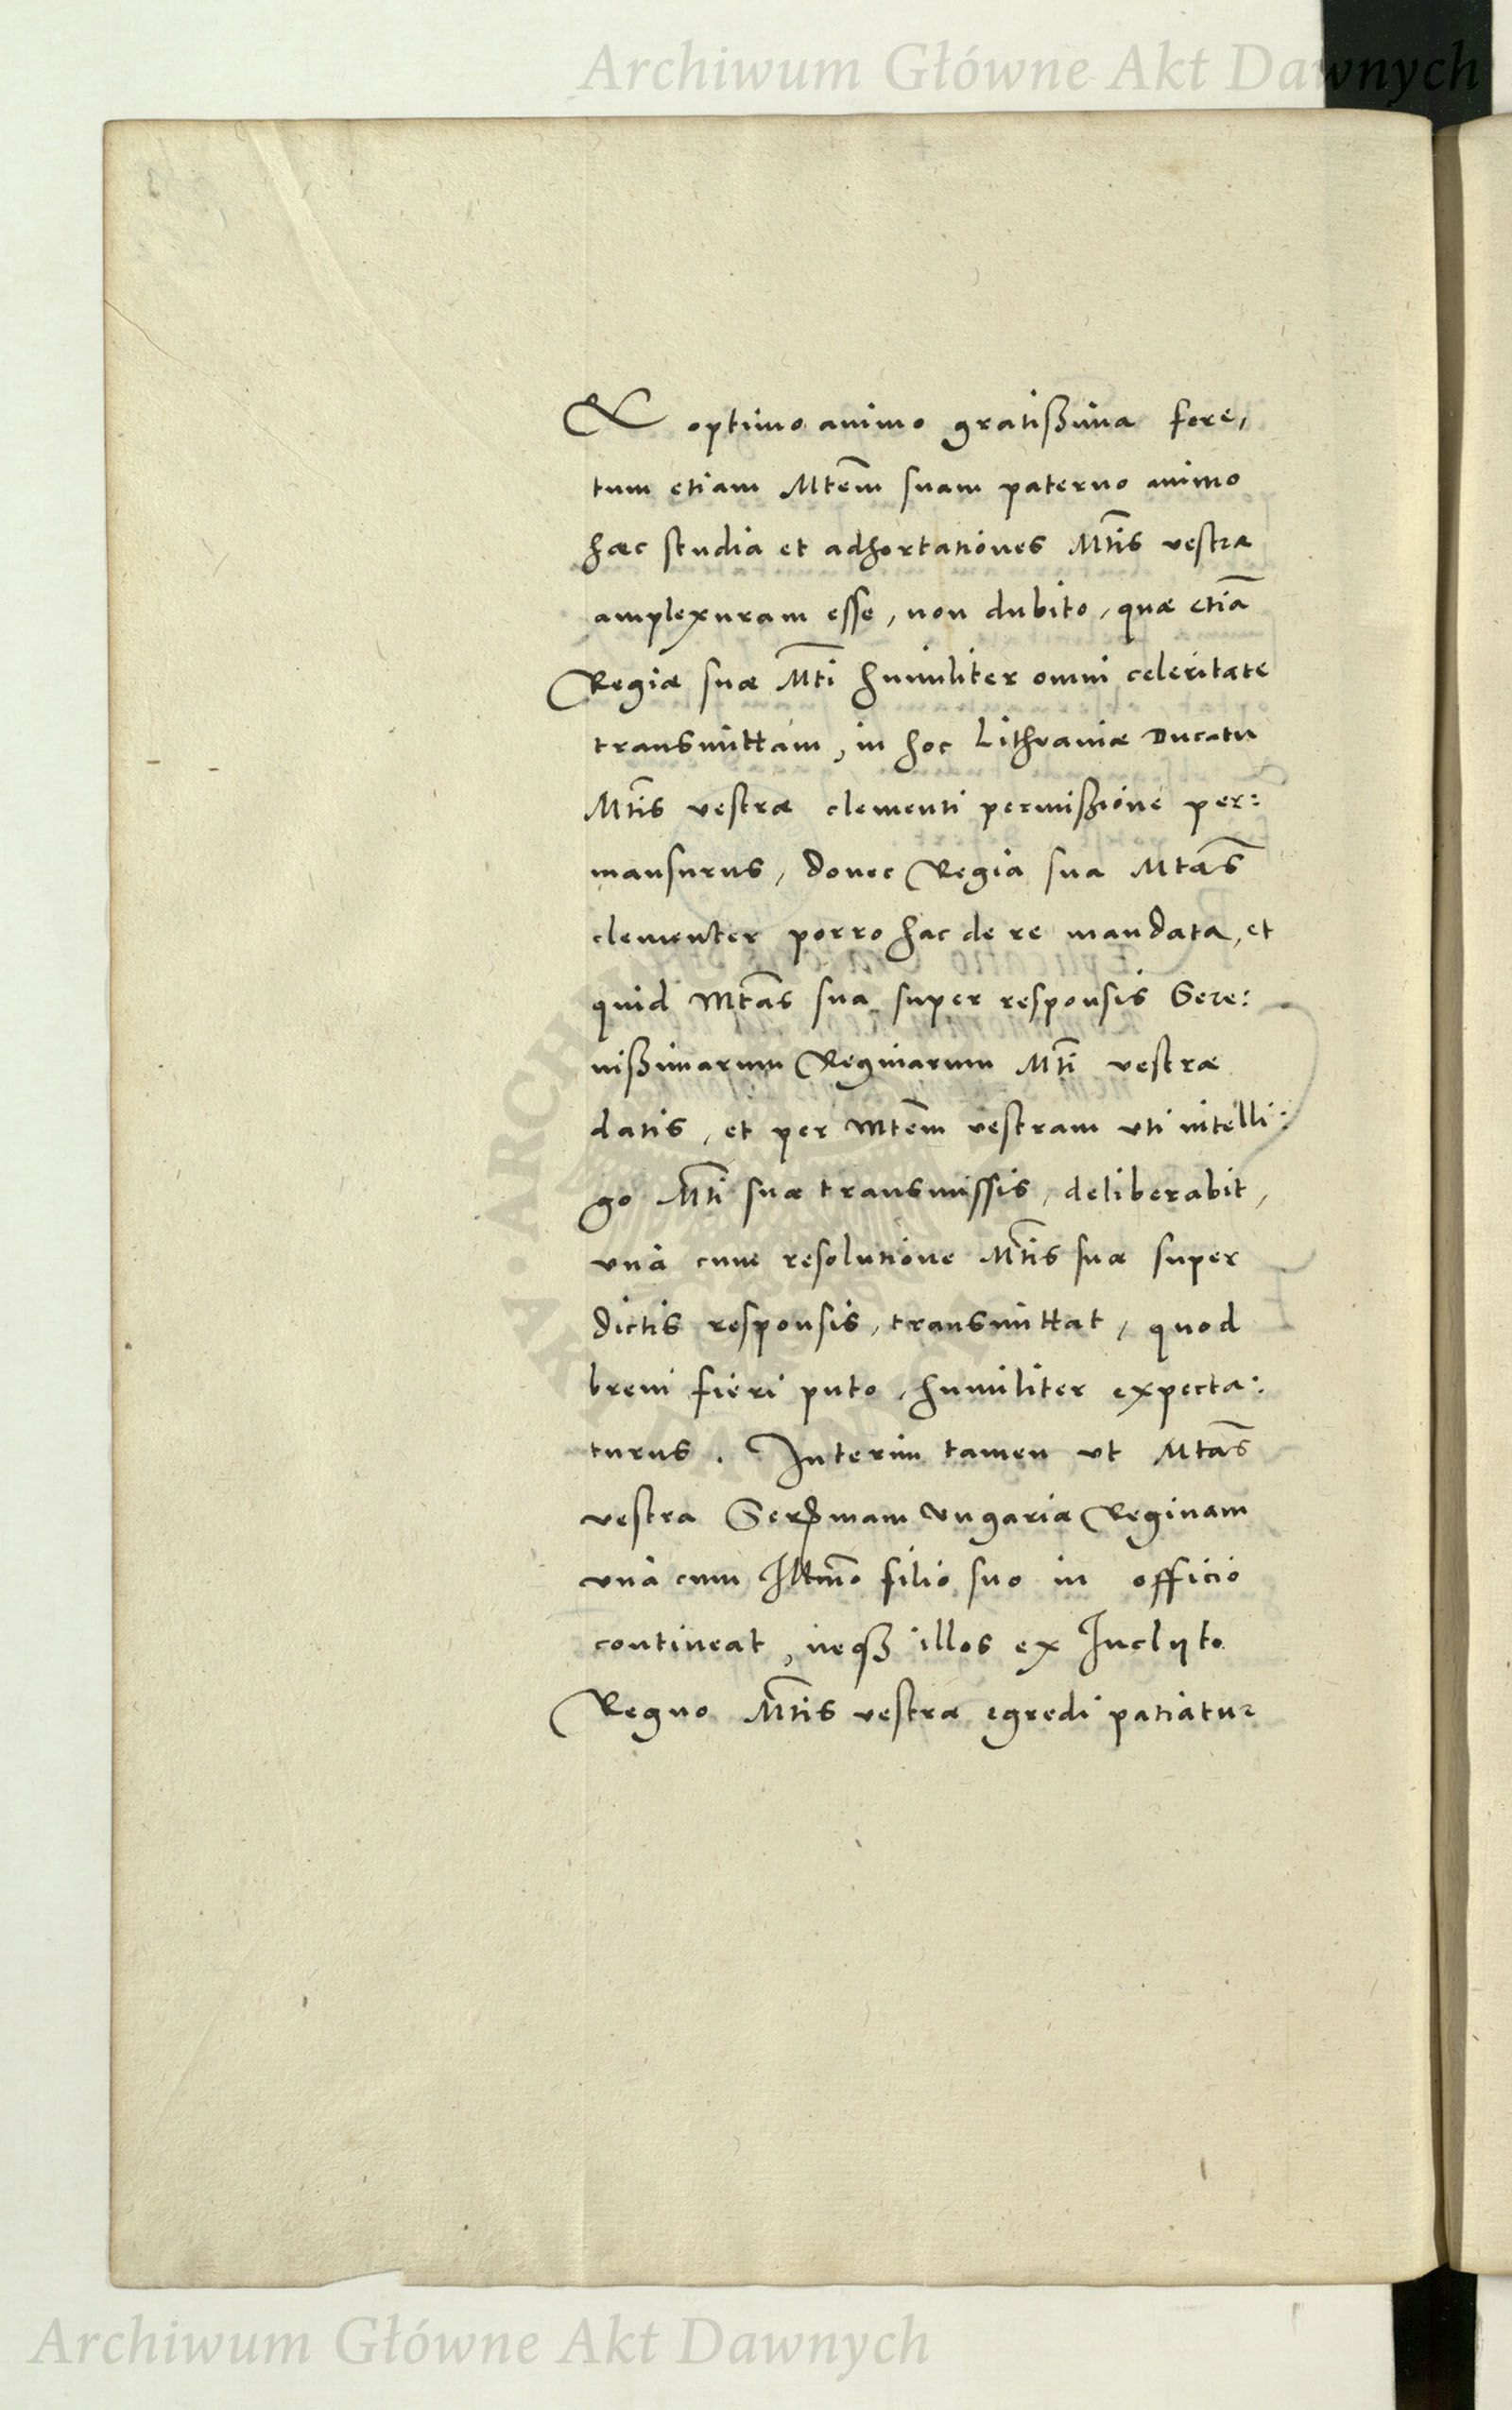 Archiwum Główne Akt Dawnych
& optimo animo gratißima fore,
tum etiam Mtẽm suam paterno animo
hæc studia et adhortationes Mtĩs vestræ
amplexuram esse, non dubito, quæ etiã
Regiæ suæ Mtĩ humiliter omni celeritate
transmittam, in hoc Lithvaniæ Ducatu
Mtĩs vestræ clementi permißione per:
mansurus, donec Regia sua Mtãs
clementer porro hac de re mandata, et
quid Mtãs sua super responsis Sere:
nißimarum Reginarum Mtĩ vestræ
datis, et per Mtẽm vestram vti intelli:
go Mtĩ suæ transmissis, deliberabit,
vnà cum resolutione Mtĩs suæ super
dictis responsis, transmittat, quod
breui fieri puto, humiliter expecta:
turus. Interim tamen vt Mtãs
vestra Serp̃mam Vngariæ Reginam
vnà cum Illm̃o filio suo in officio
contineat, neqꝫ illos ex Inclyto
Regno Mtĩs vestræ egredi patiatur
Archiwum Główne Akt Dawnych